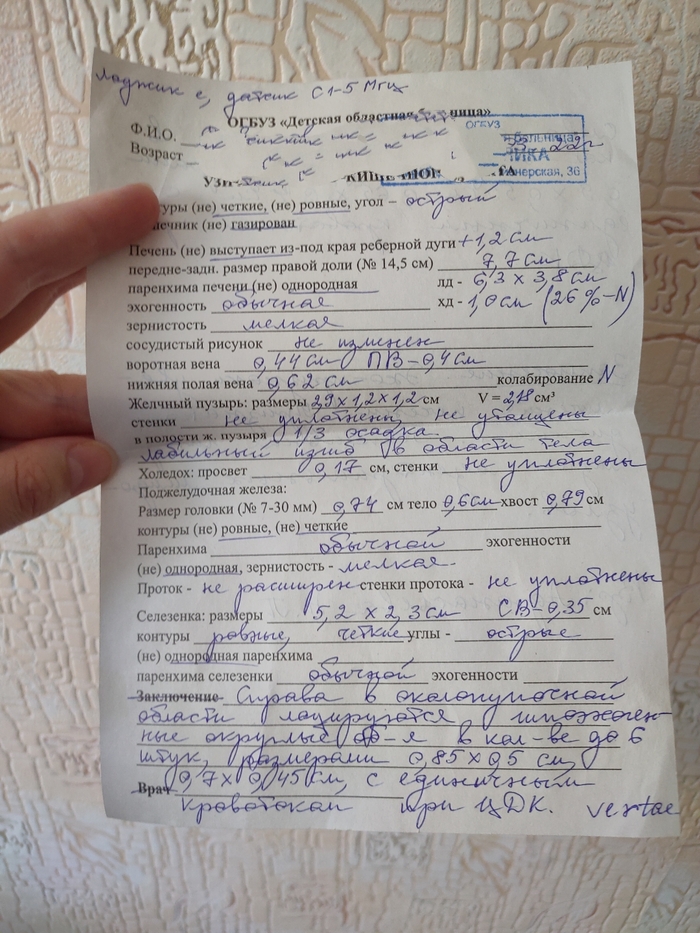 Лоджик е, датчик С1-5 Мгц
ОГБУЗ «Детская областная больница»
ОГБУЗ
Ф.И.О.
больница
22г
Возраст
нерская, 36
УЗИ
туры (не) четкие, (не) ровные, угол – острый
чник (не) газирован
Печень (не) выступает из-под края реберной дуги +1,2 см
передне-задн. размер правой доли (№ 14,5 см) 7,7 см
паренхима печени (не) однородная лд - 6,3 х 3,8 см
эхогенность обычная хд - 1,0 см (26 %-N)
зернистость мелкая
сосудистый рисунок не изменен
воротная вена 0,44 см ПВ – 0,4 см
нижняя полая вена 0,62 см колабирование N
Желчный пузырь: размеры 2,9х1,2х1,2 см V = 2,18 см³
стенки не уплотнены, не утолщены
в полости ж. пузыря 1/3 осадка.
лабильный изгиб в области тела
Холедох: просвет 0,17 см, стенки не уплотнены
Поджелудочная железа:
Размер головки (№ 7-30 мм) 0,74 см тело 0,6см хвост 0,79 см
контуры (не) ровные, (не) четкие
Паренхима обычной эхогенности
(не) однородная, зернистость - мелкая.
Проток - не расширен стенки протока - не уплотнены
Селезенка: размеры 5,2 х 2,3 см СВ-0,35 см
контуры ровные, четкие углы - острые
(не) однородная паренхима
паренхима селезенки обычной эхогенности
Заключение Справа в околопупочной
области лоцируются гипоэхоген-
ные округлые об-я в кол-ве до 6
штук, размерами 0,85х0,5 см,
Врач 0,7х0,45см, с единичным
кровотоком при ЦДК. vertae